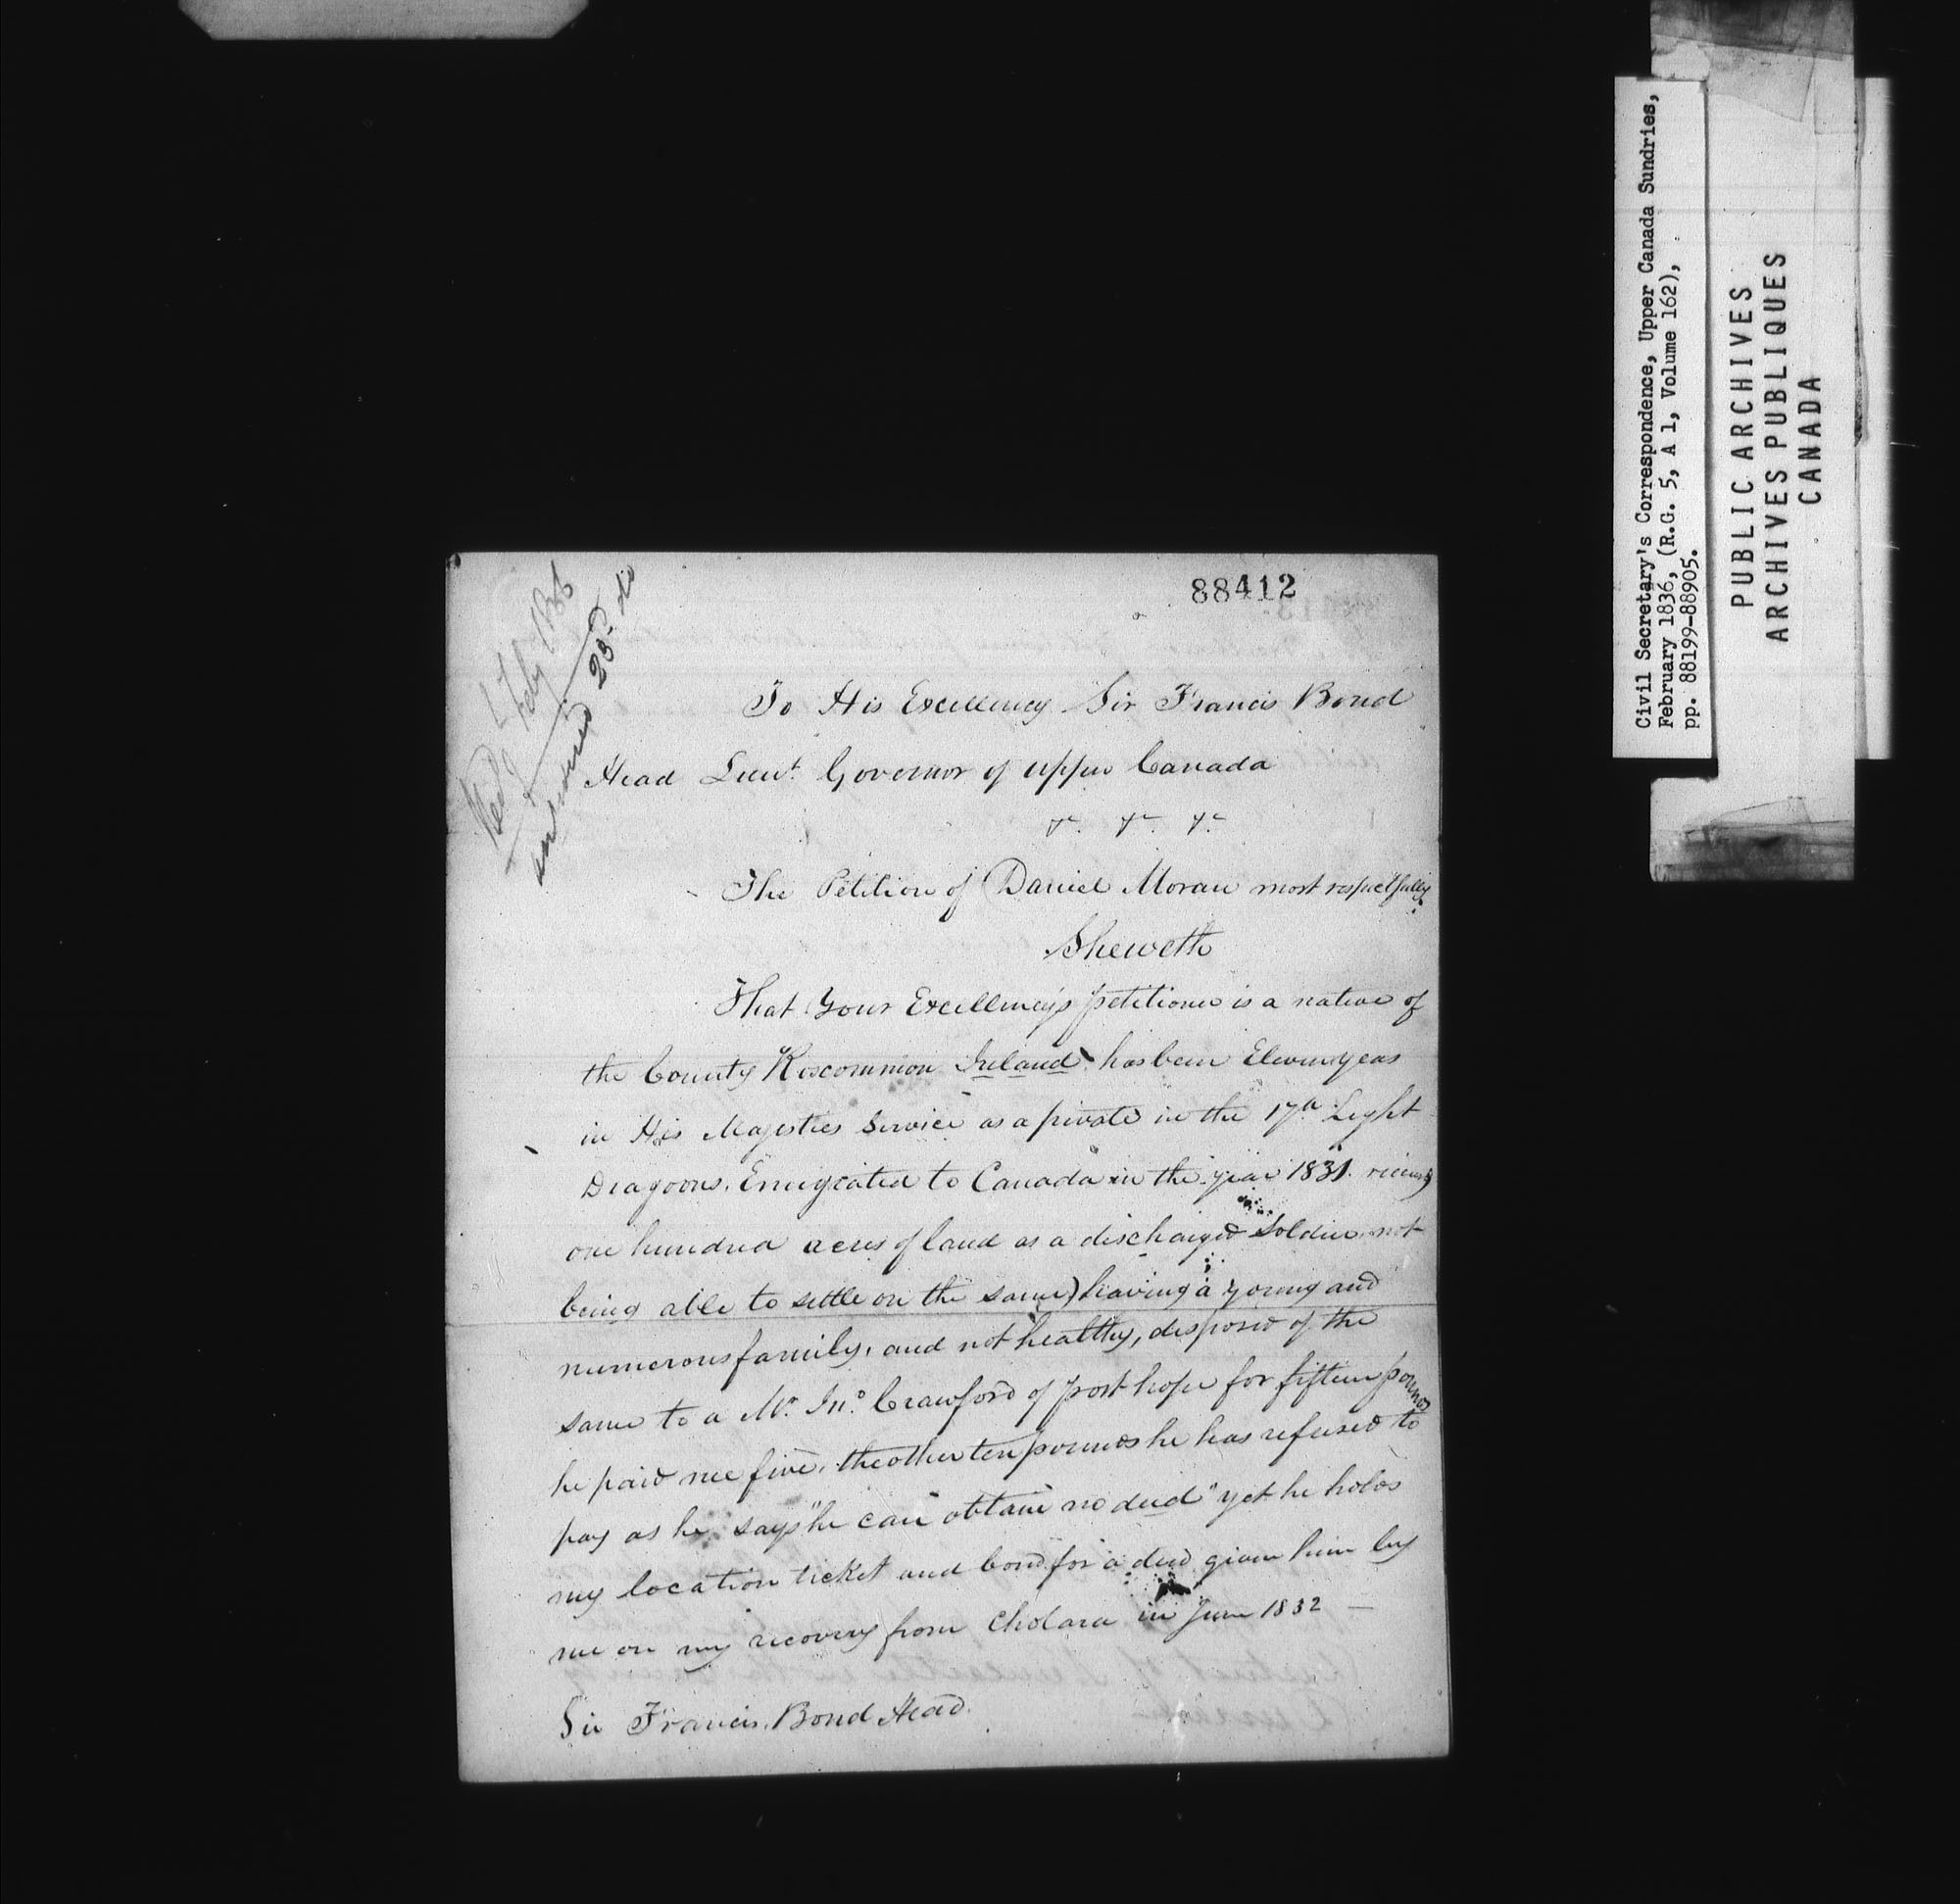 88412
Recd Feby 1836
answered 23d do
To His Excellency Sir Francis Bond
Head Lieut Governor of upper Canada
&c. &c. &c.
The Petition of Daniel Moran most respectfully
Sheweth
That Your Excellency's petitioner is a native of
the County Roscommon Ireland has been Eleven years
in His Majesties Service as a private in the 17th Light
Dragoons. Emigrated to Canada in the year 1831. received
one hundred acres of land as a discharged Soldier, not
being able to settle on the same) having a young and
numerous family, and not healthy, disposed of the
same to a Mr. Jno. Crawford of port hope for fifteen pounds
he paid me five, the other ten pounds he has refused to
pay as he says "he can obtain no deed" yet he holds
my location ticket and bond for a deed given him by
me on my recovery from Cholara in June 1832 —
Sir Francis Bond Head.
Civil Secretary's Correspondence, Upper Canada Sundries,
February 1836, (R.G. 5, A 1, Volume 162),
pp. 88199-88905.
PUBLIC ARCHIVES
ARCHIVES PUBLIQUES
CANADA